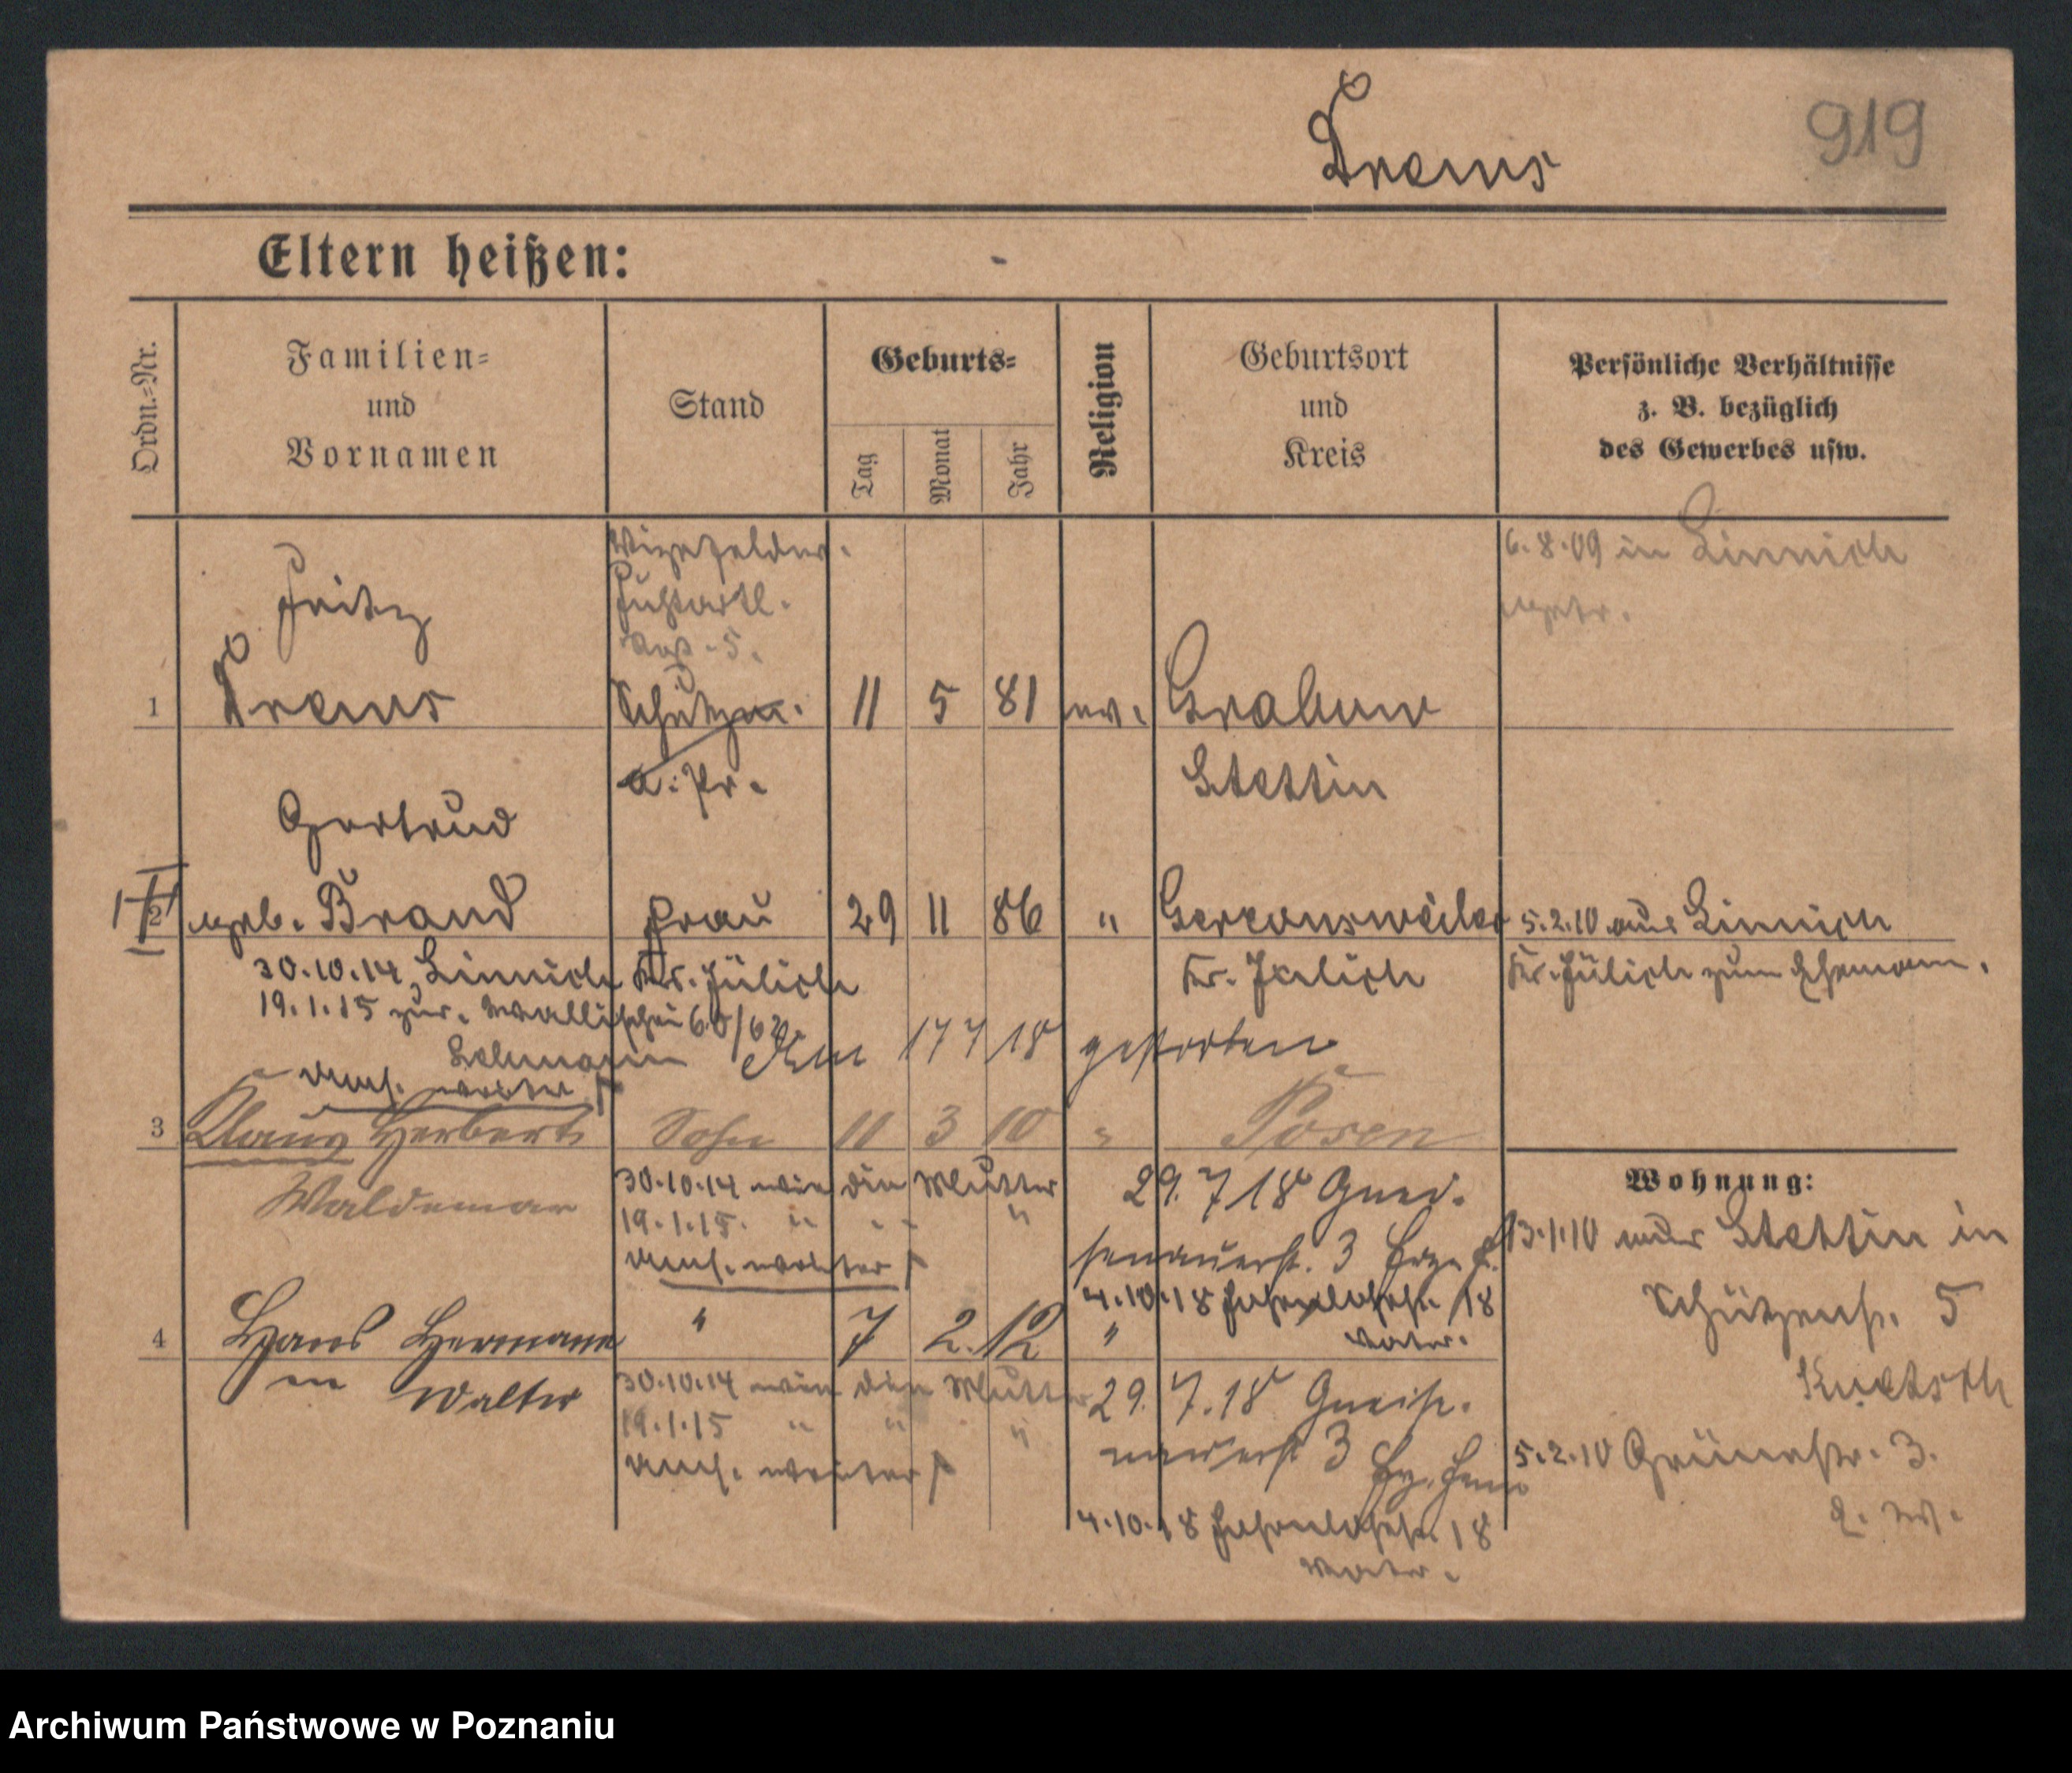 Drews
919
Eltern heißen:
Ordn.-Nr.
Familien-
und
Vornamen
Stand
Geburts-
Tag
Monat
Jahr
Religion
Geburtsort
und
Kreis
Persönliche Verhältnisse
z. B. bezüglich
des Gewerbes usw.
Vizefeldw.
Fußartl.
5.
Fritz
1 Drews
11 5 81 ev. Grabow
Stettin
6.8.09 in Linnich
getr.
a. Pr.
Gertrud
2 geb. Brand Frau 29 11 86 " Gereonsweiler
Kr. Jülich
5.2.10 aus Linnich
Kr. Jülich zum Ehemann.
30.10.14 Linnich Kr. Jülich
19.1.15 zur. Wallischei 60/62
Lehmann
Am 17 7 18 gestorben
umf. weiter
3 Klaus Herbert Sohn 11 3 10 " Posen
Waldemar
30.10.14 wie die Mutter
19.1.15. " " "
umf. weiter
29.7 18 Gnei-
senauerst. 3
4.10.18 18
Vater.
4 Hans Hermann " 7 2. 12 "
Walter
30.10.14 wie die Mutter
19.1.15 " " "
umf. weiter
29.7.18 Gneise-
nauerst 3
4.10.18 18
Vater.
Wohnung:
13.1.10 aus Stettin in
Schützenst. 5
5.2.10 Grünestr. 3.
Archiwum Państwowe w Poznaniu